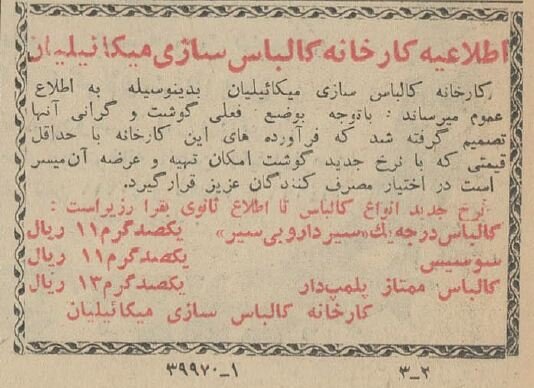 اطلاعیه کارخانه کالباس سازی میکائیلیان
کارخانه کالباس سازی میکائیلیان بدینوسیله به اطلاع
عموم میرساند : باتوجه بوضع فعلی گوشت و گرانی آنها
تصمیم گرفته شد که فرآورده های این کارخانه با حداقل
قیمتی که با نرخ جدید گوشت امکان تهیه و عرضه آن میسر
است در اختیار مصرف کنندگان عزیز قرار گیرد.
نرخ جدید انواع کالباس تا اطلاع ثانوی بقرا رزیر است :
کالباس درجه یك «سیر دار و بی سیر» یکصد گرم ۱۱ ریال
سوسیس یکصد گرم ۱۱ ریال
کالباس ممتاز پلمپ دار یکصد گرم ۱۳ ریال
کارخانه کالباس سازی میکائیلیان
۳-۲ ۳۹۹۷۰-۱